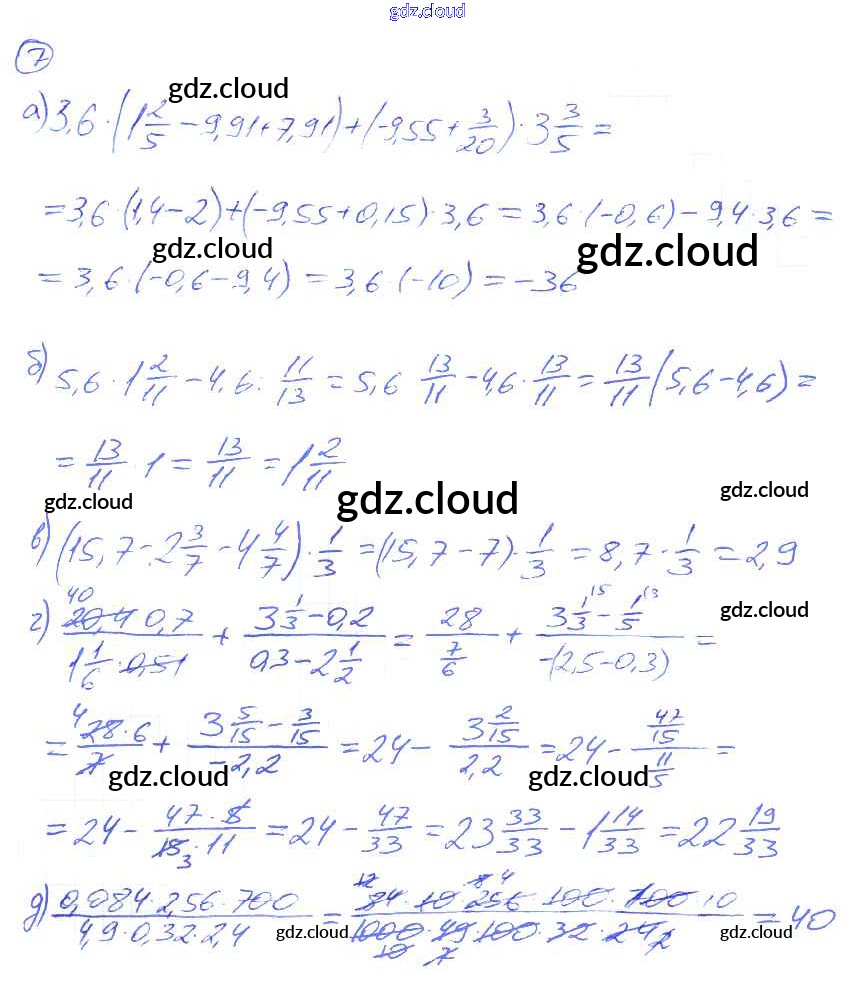 gdz.cloud
7
gdz.cloud
а) 3,6 · (1 2/5 − 9,91 + 7,91) + (−9,55 + 3/20) · 3 3/5 =
= 3,6 · (1,4 − 2) + (−9,55 + 0,15) · 3,6 = 3,6 · (−0,6) − 9,4 · 3,6 =
gdz.cloud gdz.cloud
= 3,6 · (−0,6 − 9,4) = 3,6 · (−10) = −36
б) 5,6 · 1 2/11 − 4,6 : 11/13 = 5,6 13/11 − 4,6 · 13/11 = 13/11 (5,6 − 4,6) =
= 13/11 · 1 = 13/11 = 1 2/11
gdz.cloud gdz.cloud gdz.cloud
в) (15,7 − 2 3/7 − 4 4/7) · 1/3 = (15,7 − 7) · 1/3 = 8,7 · 1/3 = 2,9
г) (40 20,4 0,7)/(1 1/6 · 0,51) + (3 1/3 − 0,2)/(0,3 − 2 1/2) = 28/(7/6) + (3 1/3 15 − 1/5 13)/(−(2,5 − 0,3)) =
gdz.cloud
= (4 28 · 6)/7 + (3 5/15 − 3/15)/(−2,2) = 24 − (3 2/15)/2,2 = 24 − (47/15)/(11/5) =
gdz.cloud gdz.cloud
= 24 − (47 · 5)/(15 3 · 11) = 24 − 47/33 = 23 33/33 − 1 14/33 = 22 19/33
д) (0,084 · 2,56 · 700)/(4,9 · 0,32 · 2,4) = (12 84 · 10 8 4 256 · 100 · 100 · 10)/(1000 10 · 49 7 · 100 · 32 · 24 2) = 40
gdz.cloud gdz.cloud